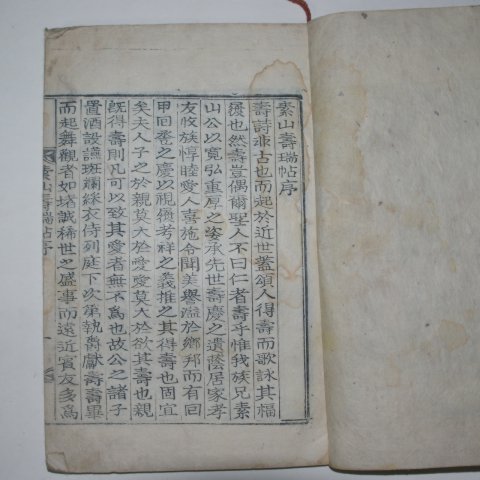 素山壽瑞帖序
壽詩非古也而起於近世蓋頌人得壽而歌詠其福
履也然壽豈偶爾聖人不曰仁者壽乎惟我族兄素
山公以寬弘重厚之姿承先世壽慶之遺蔭居家孝
友攸族惇睦愛人喜施令聞美譽溢於鄉邦而有回
甲回巹之慶以視履考祥之義推之其得壽也固宜
矣夫人子之於親莫大於愛愛莫大於欲其壽也親
旣得壽則凡可以致其愛者無不爲也故公之諸子
置酒設讌斑斕綵衣侍列庭下次第執爵獻壽壽畢
而起舞觀者如堵誠稀世之盛事而遠近賓友多爲
素山壽瑞帖序
一